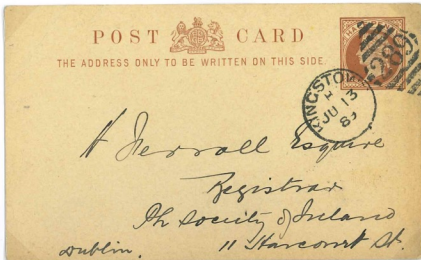 POST CARD
THE ADDRESS ONLY TO BE WRITTEN ON THIS SIDE.
HALFPENNY
KINGSTOWN
H
JU 13
89
289
H Ferrall Esquire
Registrar
Ph Society of Ireland
11 Harcourt St.
Dublin.